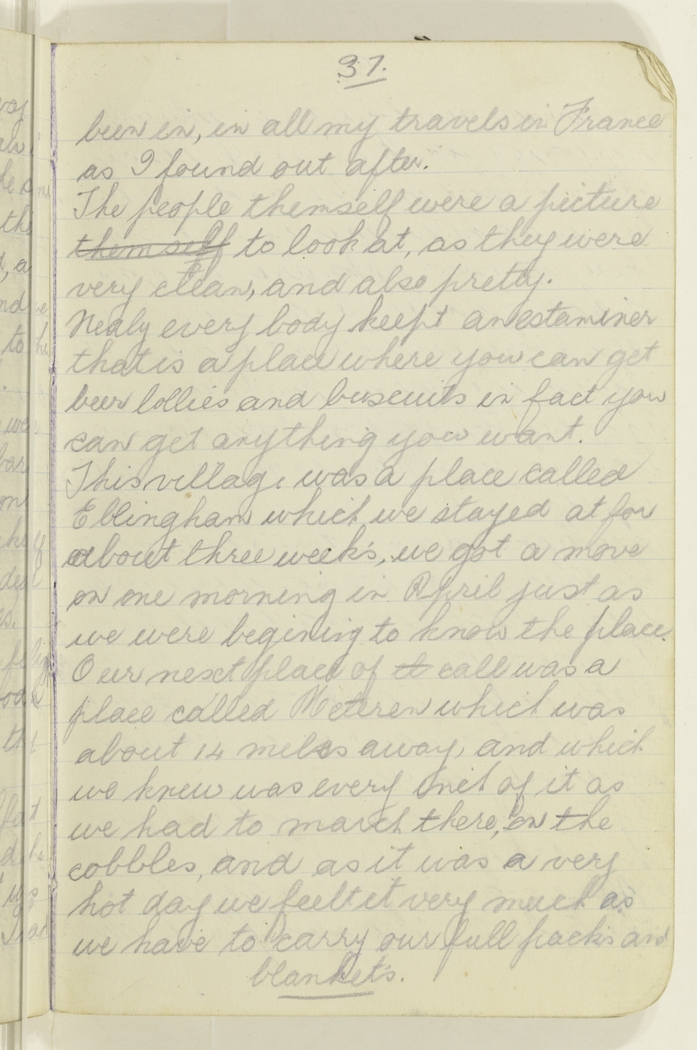 37.
been in, in all my travels in France
as I found out after.
The people themself were a picture
themself to look at, as they were
very clean, and also pretty.
Nealy every body keept an estaminer
that is a place where you can get
beer lollies and buscuits in fact you
can get anything you want.
This village was a place called
Ebbingham which we stayed at for
about three week's, we got a move
on one morning in April just as
we were begining to know the place.
Our next place of call was a
place called Meteren which was
about 14 miles away, and which
we knew was every inch of it as
we had to march there, on the
cobbles, and as it was a very
hot day we feelt it very much as
we have to carry our full packs and
blanket's.